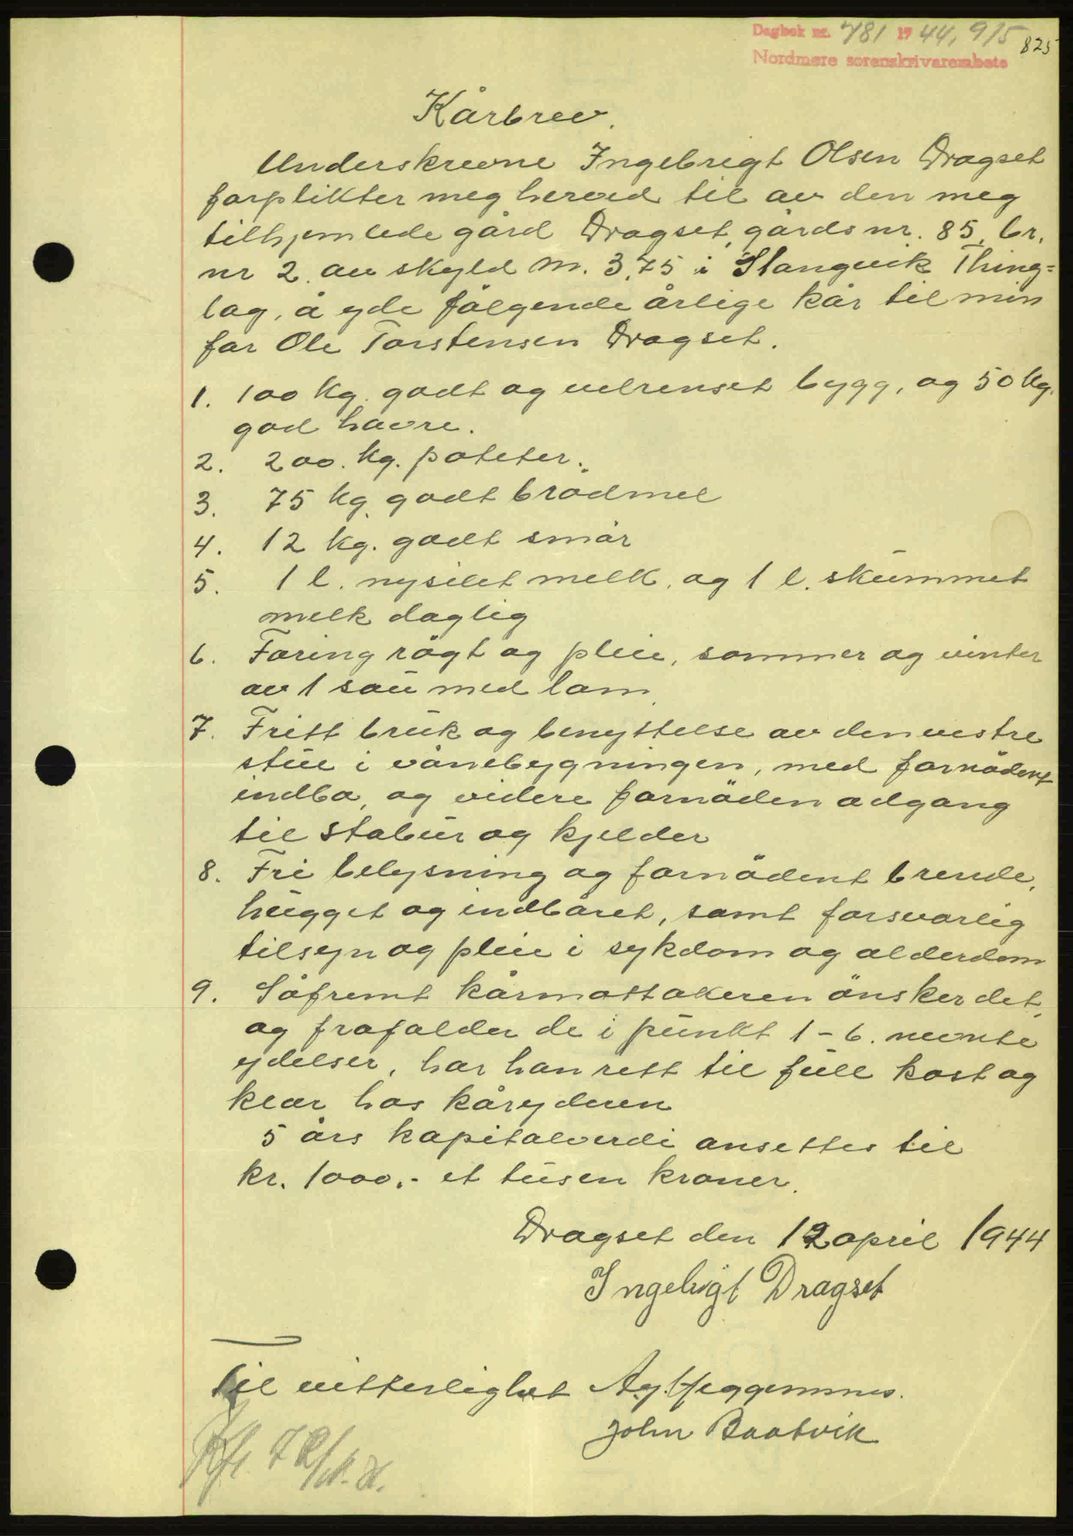 Dagbok nr. 781 1944, 9/5
825
Nordmøre sorenskriverembete
Kårbrev.
Underskrevne Ingebrigt Olsen Dragset
forplikter meg herved til av den meg
tilhjemlede gård Dragset, gårdsnr. 85, br.
nr 2. av skyld m. 3,75 i Stangvik Thing=
lag, å yde følgende årlige kår til min
far Ole Torstensen Dragset.
1. 100 kg. godt og velrenset bygg, og 50 kg.
god havre.
2. 200. kg. poteter.
3. 75 kg. godt brödmel
4. 12 kg. godt smör
5. 1 l. nysilet melk, og 1 l. skummet
melk daglig
6. Foring rögt og pleie, sommer og vinter
av 1 sau med lam
7. Fritt bruk og benyttelse av den vestre
stue i vånebygningen, med fornödent
indbo, og videre fornöden adgang
til stabur og kjelder
8. Fri belysning og fornödent brende,
hugget og indbåret, samt forsvarlig
tilsyn og pleie i sykdom og alderdom
9. Såfremt kårmottakeren önsker det,
og frafalder de i punkt 1-6. nevnte
ydelser, har han rett til full kost og
klær hos kåryderen
5 års kapitalverdi ansettes til
kr. 1000.- et tusen kroner.
Dragset den 12 april 1944
Ingebrigt Dragset
Til vitterlighet A. Heggemnes.
John Baatvik